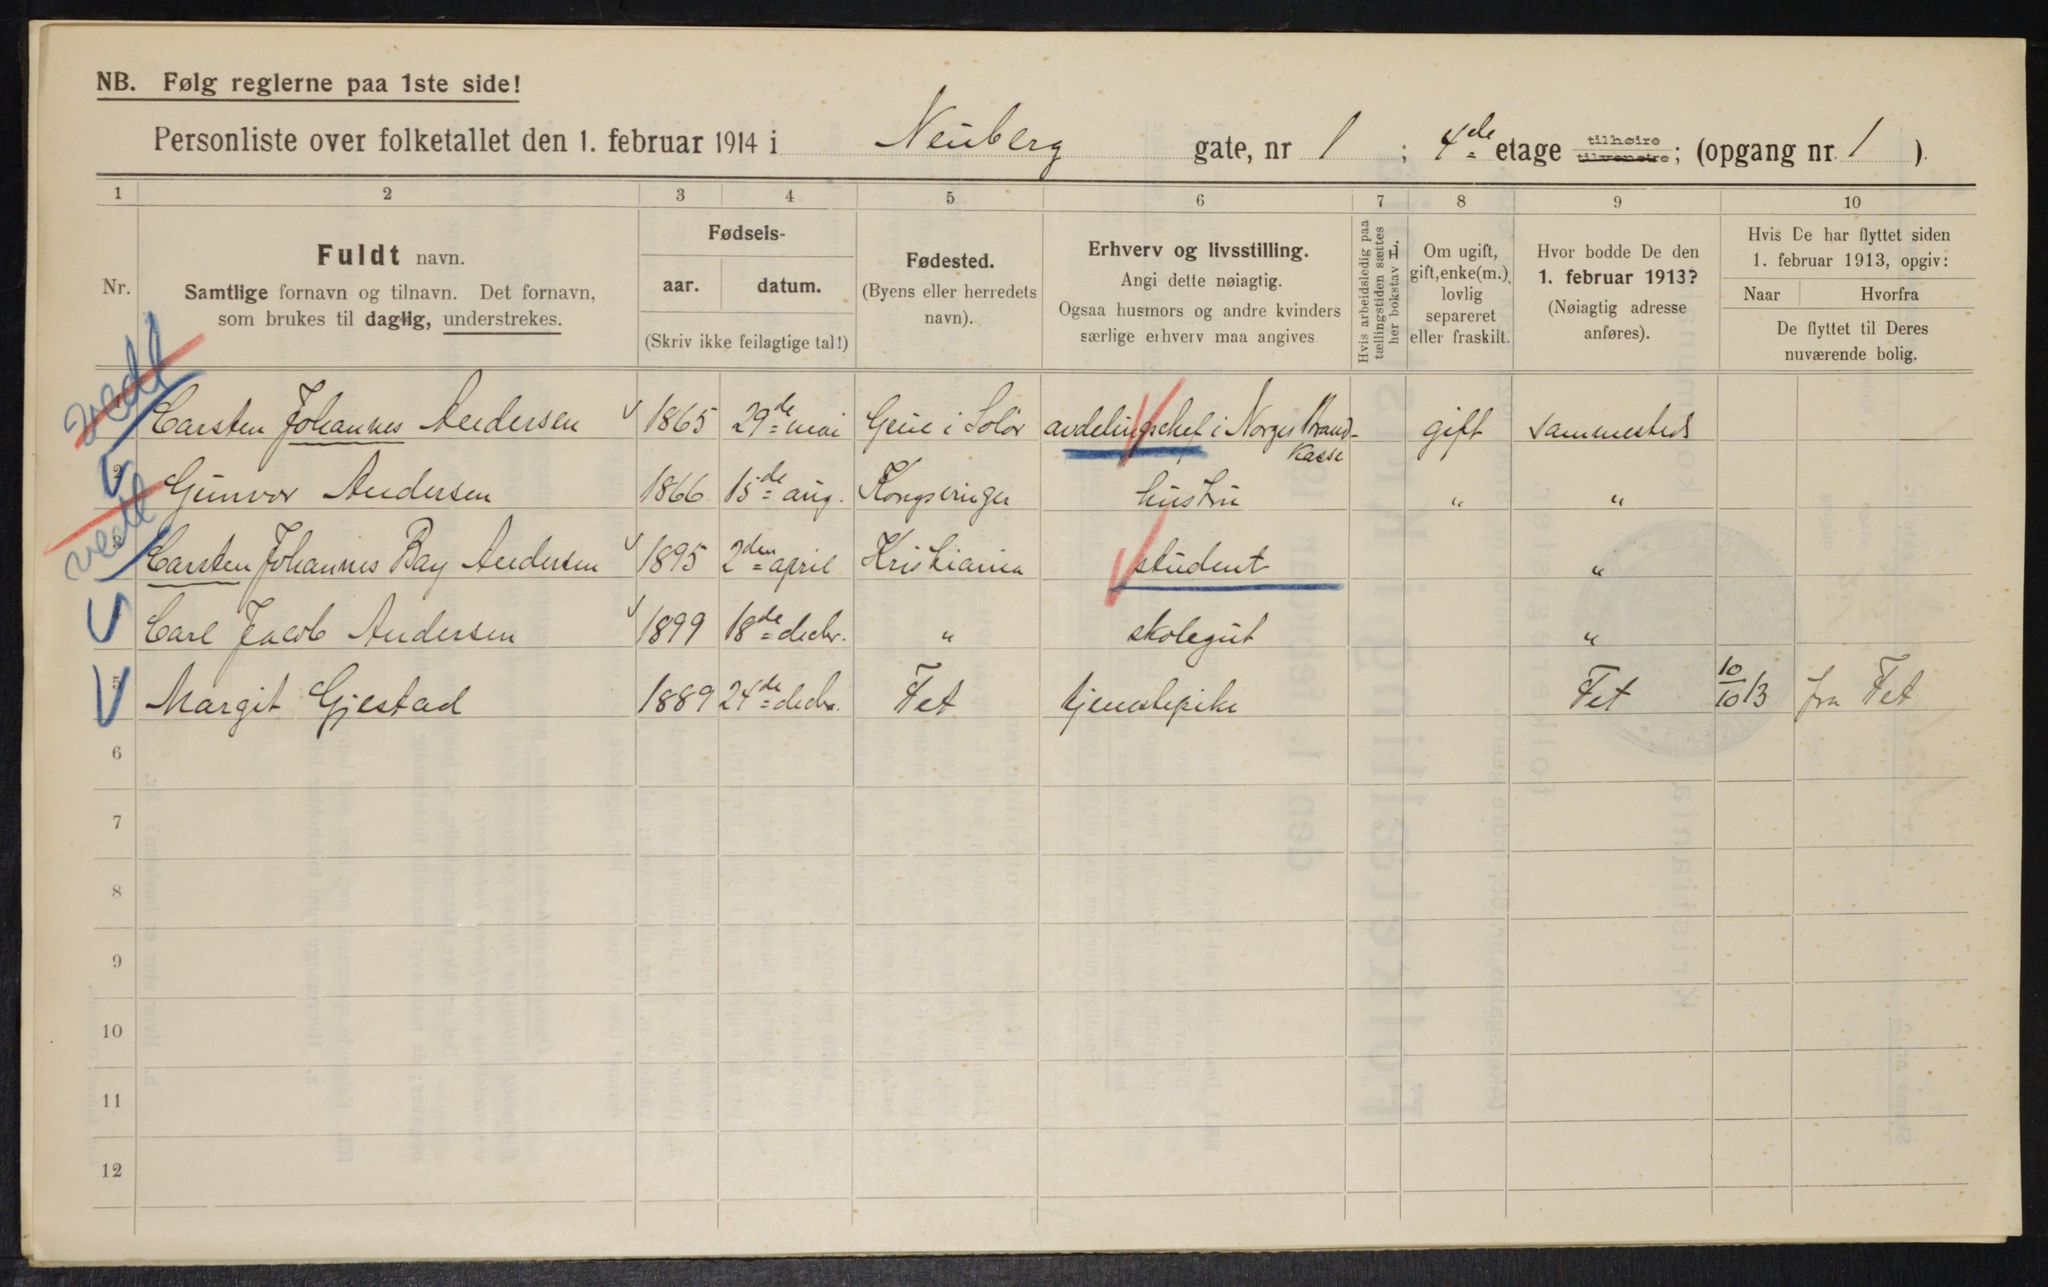 NB. Følg reglerne paa 1ste side!
Personliste over folketallet den 1. februar 1914 i Neuberg gate, nr 1 ; 4de etage tilhøire tilvenstre; (opgang nr. 1 ).
1 2 3 4 5 6 7 8 9 10
Nr.
Fuldt navn.
Samtlige fornavn og tilnavn. Det fornavn,
som brukes til daglig, understrekes.
Fødsels-
aar. datum.
(Skriv ikke feilagtige tal!)
Fødested.
(Byens eller herredets
navn).
Erhverv og livsstilling.
Angi dette nøiagtig.
Ogsaa husmors og andre kvinders
særlige erhverv maa angives
Hvis arbeidsledig paa
tællingstiden sættes
her bokstav L.
Om ugift,
gift, enke(m.),
lovlig
separeret
eller fraskilt.
Hvor bodde De den
1. februar 1913?
(Nøiagtig adresse
anføres).
Hvis De har flyttet siden
1. februar 1913, opgiv:
Naar Hvorfra
De flyttet til Deres
nuværende bolig.
vedt
1 Carsten Johannes Andersen 1865 29de mai Grue i Solør avdelingschef i Norges Brand- gift sammesteds
Kasse
2 Gunvor Andersen 1866 15de aug. Kongsvinger hustru " "
vedt
3 Carsten Johannes Bay Andersen 1895 2den april Kristiania student "
4 Carl Jacob Andersen 1899 18de decbr. " skolegut "
5 Margit Gjestad 1889 24de decbr. Fet tjenestepike Fet 10/10 13 fra Fet
6
7
8
9
10
11
12